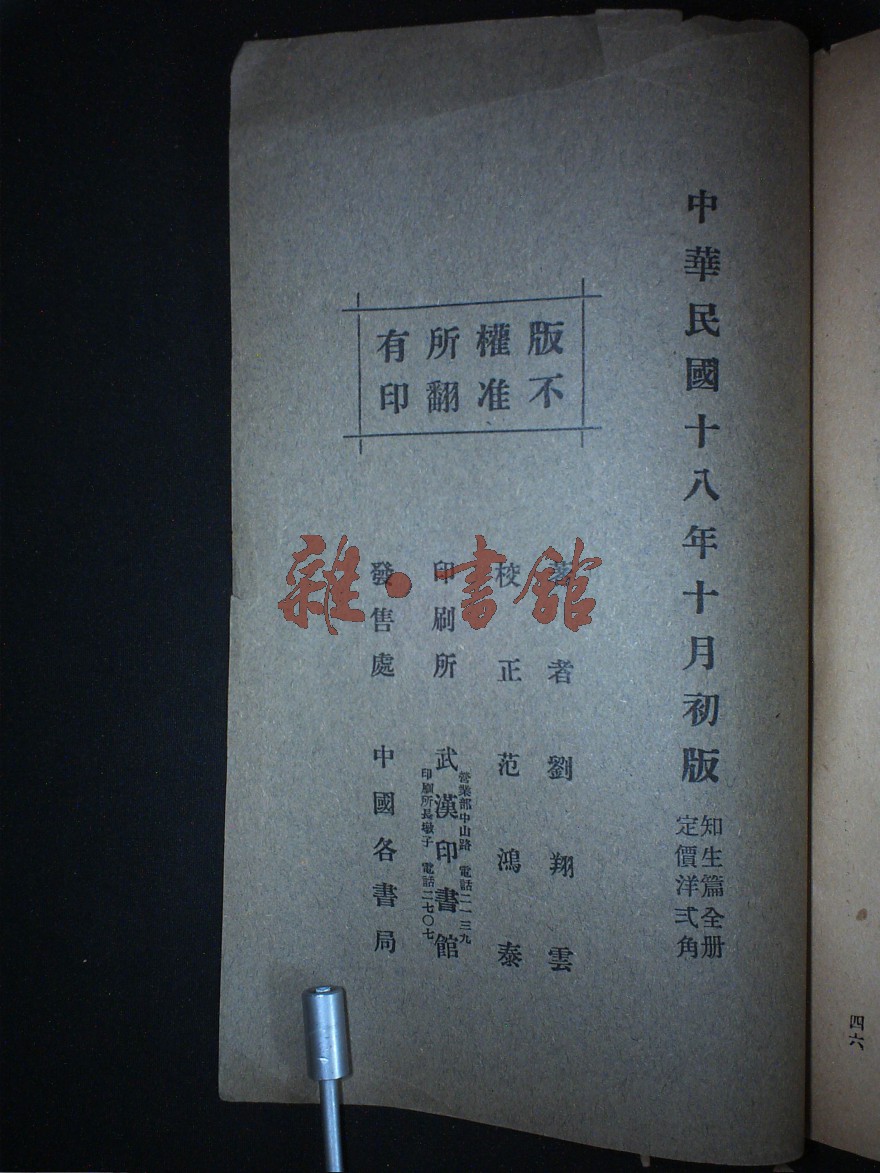 中華民國十八年十月初版
知生篇全册
定價洋弍角
版權所有
不准翻印
著者 劉翔雲
校正 范鴻泰
印刷所 武漢印書館
營業部中山路 電話二一三九
印刷所長墩子 電話二七〇七
發售處 中國各書局
雜·書館
四六